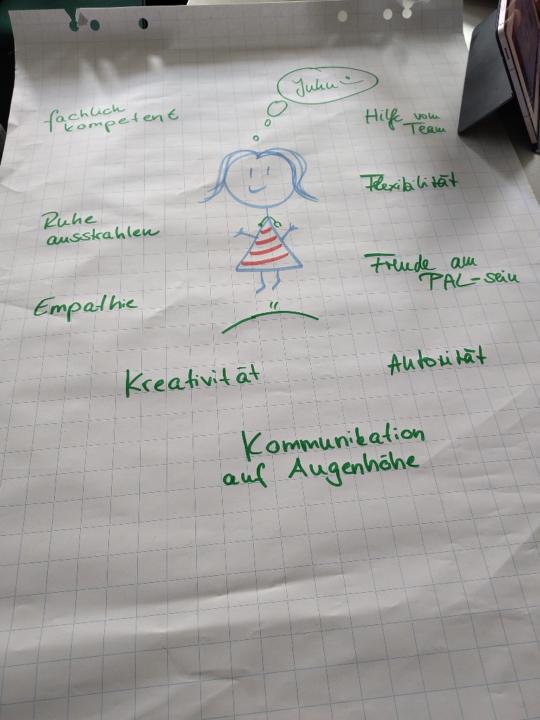 Juhu
fachlich
kompetent
Hilfe vom
Team
Flexibilität
Ruhe
ausstrahlen
Freude am
PAL-sein
Empathie
Autorität
Kreativität
Kommunikation
auf Augenhöhe